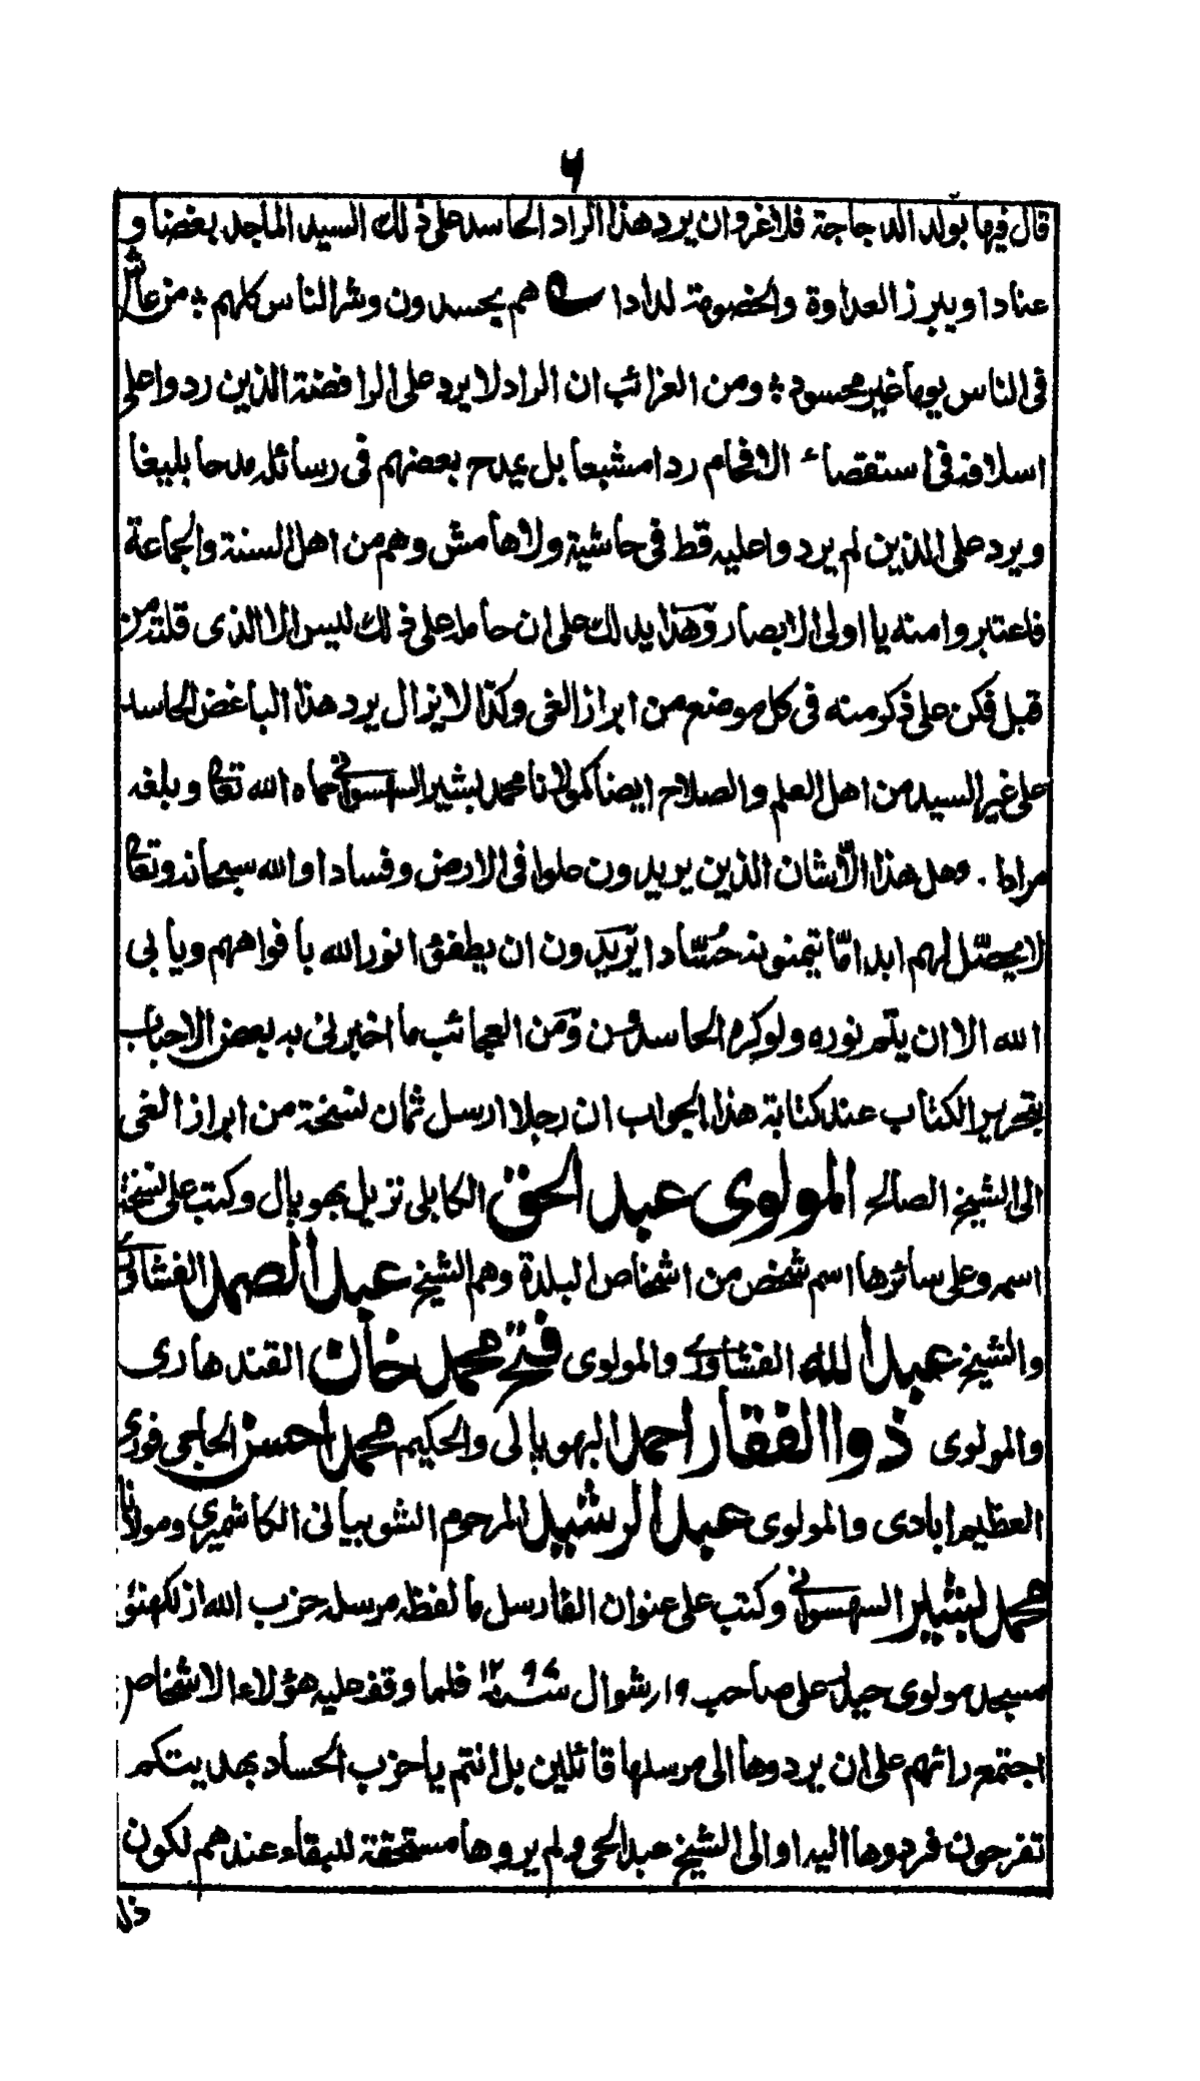 ٦
قال فيها بولد الد جاجة فلا غروان يرد هذا الراد الحاسد على ذلك السيد الماجد بغضا و
عنادا ويبرز العداوة والخصومة لدادا هم يحسدون وشر الناس كلهم ؞ من عاش
فى الناس يوما غير محسود ؞ ومن الغرائب ان الراد لا يرد على الرافضة الذين ردوا على
اسلافه فى استقصاء الافحام ردا مشبعا بل يمدح بعضهم فى رسائله مدحا بليغا
ويرد على الذين لم يردوا عليه قط فى حاشية ولا هامش وهم من اهل السنة والجماعة
فاعتبروا منه يا اولى الابصار وهذا يدلك على ان حامله على ذلك ليس الا الذى قلته من
قبل فكن على ذكر منه فى كل موضع من ابراز الغى وكذا لا يزال يرد هذا الباغض الحاسد
على غير السيد من اهل العلم والصلاح ايضا كمولانا محمد بشير السهسوانى حماه الله تعالى وبلغه
مرامه . وهل هذا الا شان الذين يريدون علوا فى الارض وفسادا والله سبحانه وتعالى
لا يحصّل لهم ابدا ممّا يتمنونه حُسّادا يريدون ان يطفئوا نور الله بافواههم ويابى
الله الا ان يتم نوره ولو كره الحاسدون ومن العجائب ما اخبرنى به بعض الاحباب
بتحرير الكتاب عند كتابة هذا الجواب ان رجلا ارسل ثمان نسخة من ابراز الغى
الى الشيخ الصالح المولوى عبد الحق الكابلى نزيل بهوپال وكتب على نسخة
اسمه وعلى سائرها اسم شخص من اشخاص البلدة وهم الشيخ عبد الصمد الفشاورى
والشيخ عبد الله الفشاورى والمولوى فتح محمد خان القندهارى
والمولوى ذو الفقار احمد البهوپالى والحكيم محمد احسن الحاجى فورى
العظيم ابادى والمولوى عبد الرشيد المرحوم الشوبيانى الكاشميرى ومولانا
محمد بشير السهسوانى وكتب على عنوان الفارسل ما لفظه مرسله حزب الله از لكهنؤ
مسجد مولوى حيدر على صاحب ١٩ ر شوال سنه ١٢٩٨ فلما وقف عليه هؤلاء الاشخاص
اجتمع رائهم على ان يردوها الى مرسلها قائلين بل انتم يا حزب الحساد بهديتكم
تفرحون فردوها اليه او الى الشيخ عبد الحى ولم يروها مستحقة للبقاء عندهم لكون
ذلك